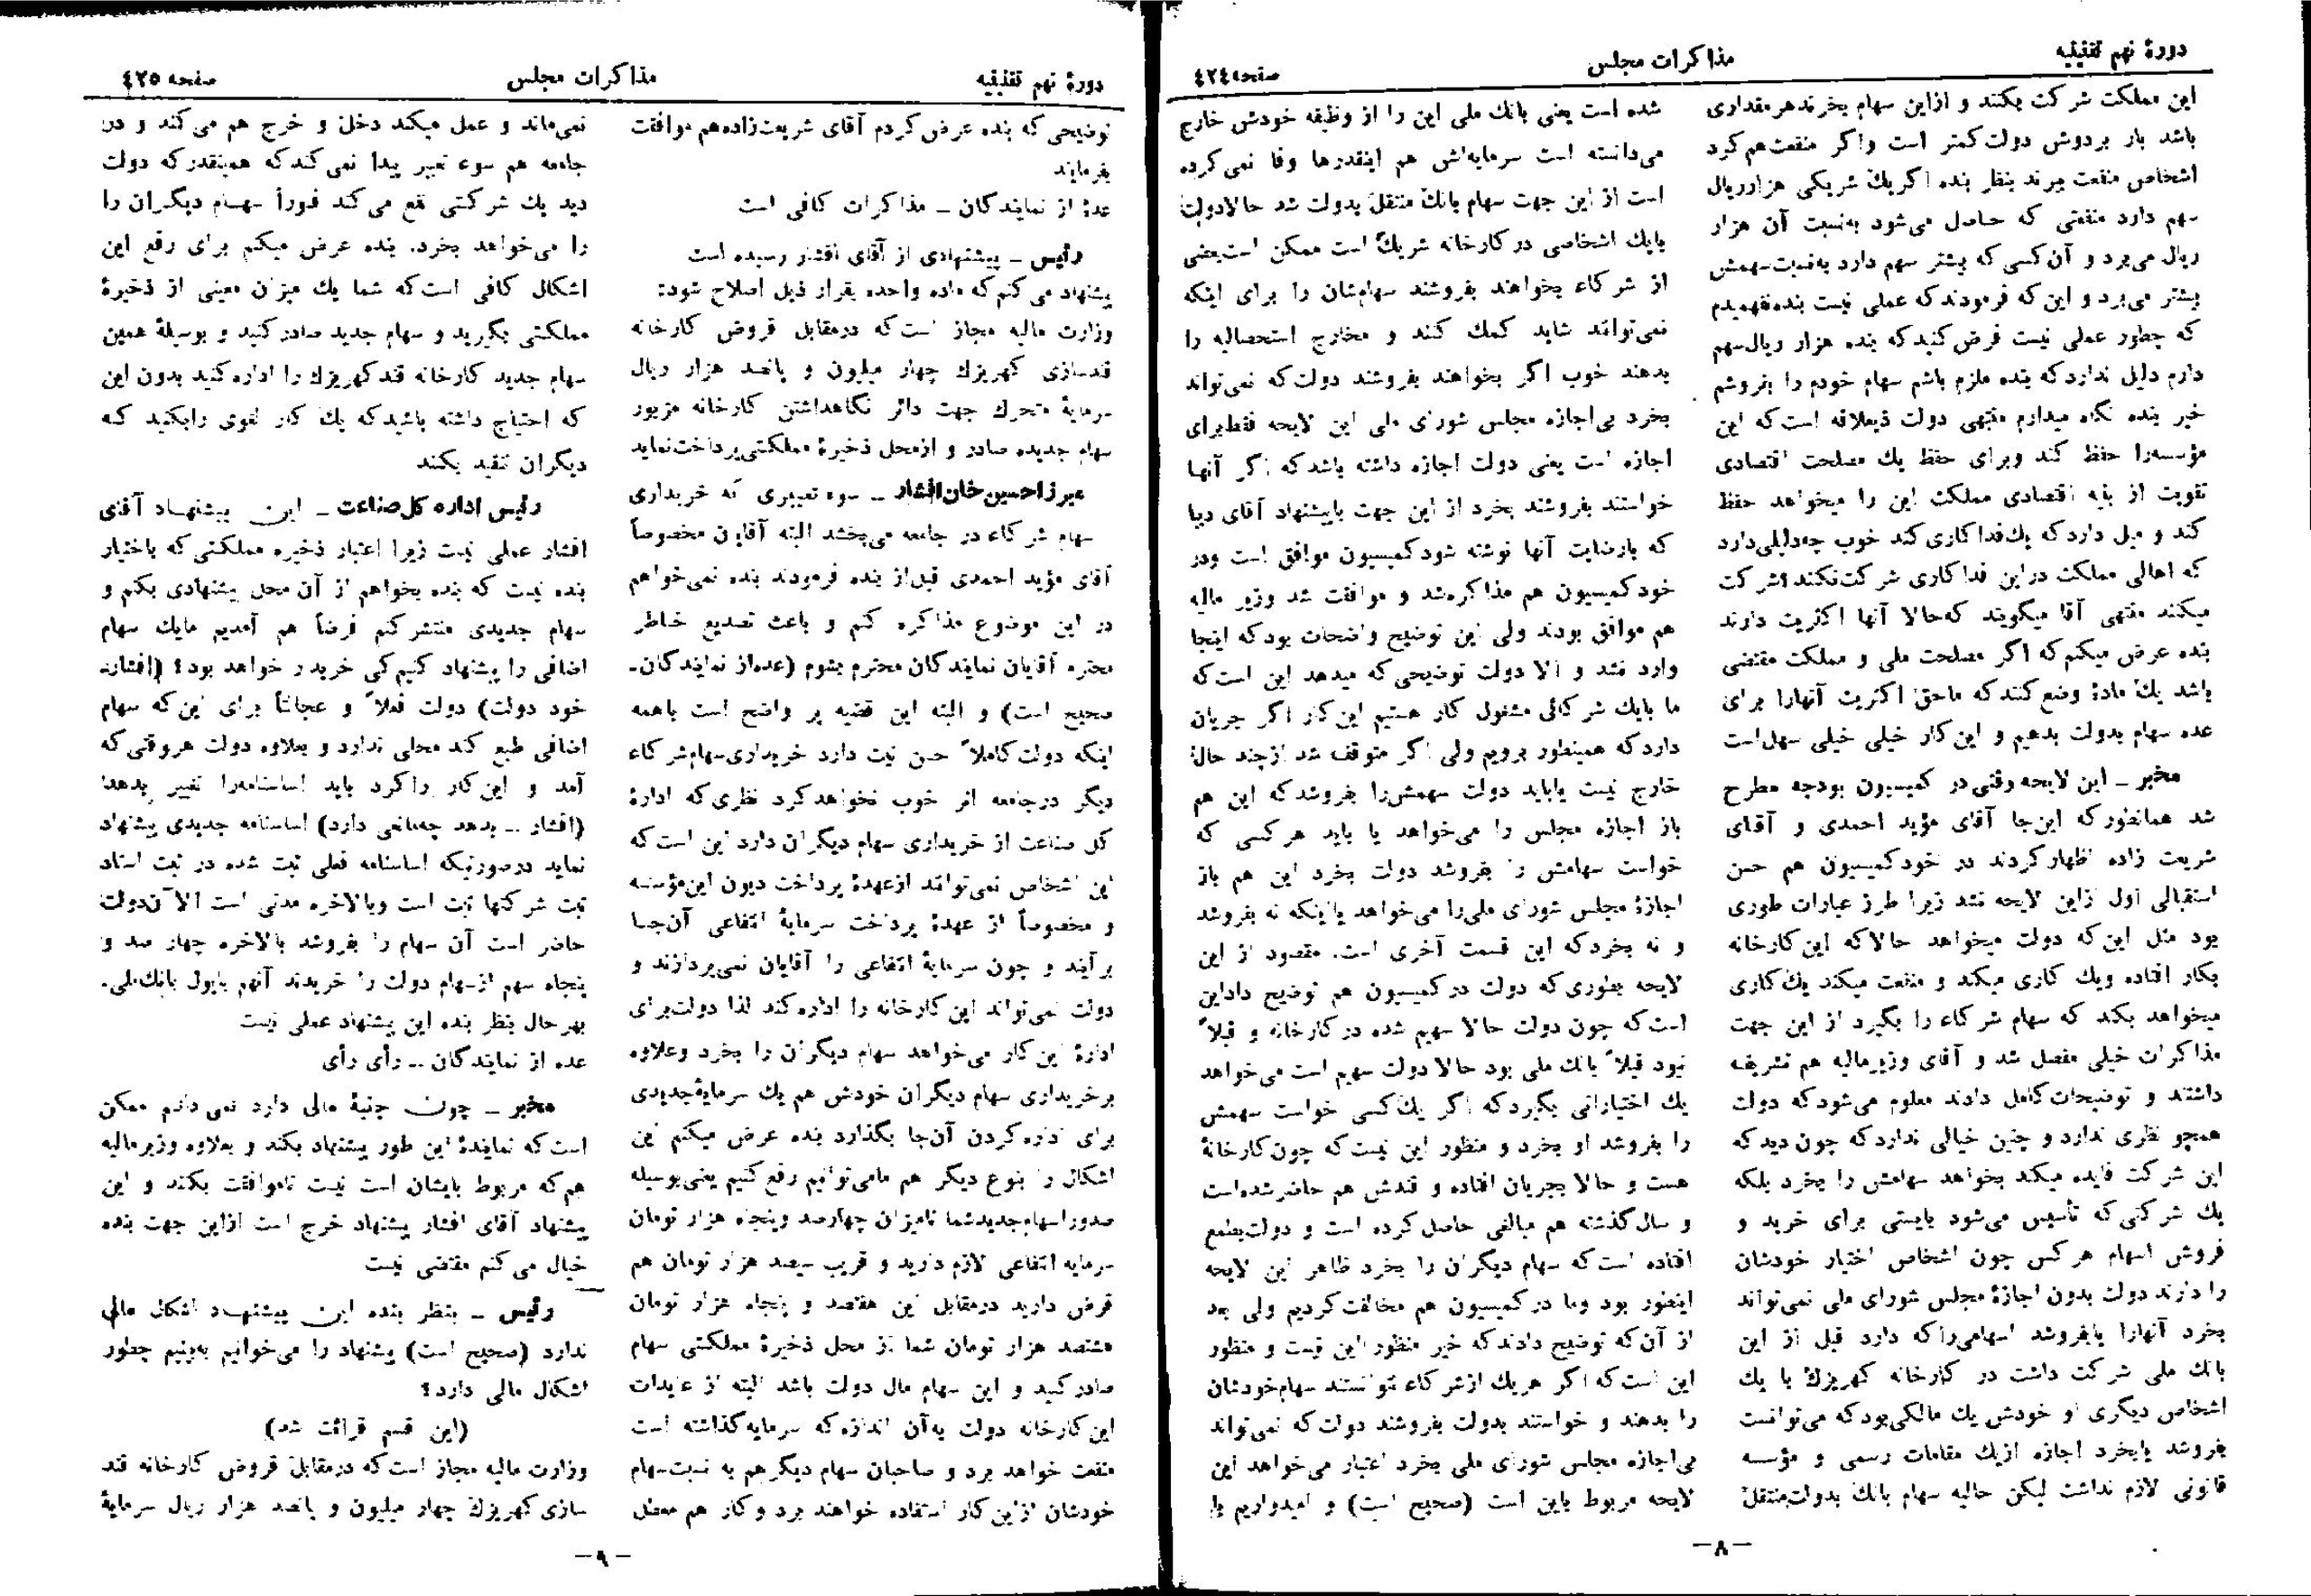 دورهٔ نهم تقنینیه
مذاکرات مجلس
صفحه ٤٢٤
این مملکت شرکت بکنند و ازاین سهام بخرند هرمقداری
باشد بار بردوش دولت کمتر است واگر منفعت هم کرد
اشخاص منفعت ببرند بنظر بنده اگریك شریکی هزارریال
سهم دارد منفعتی که حاصل می‌شود به‌نسبت آن هزار
ریال می‌برد و آن کسی که بیشتر سهم دارد به‌نسبت سهمش
بیشتر می‌برد و این که فرمودند که عملی نیست بنده نفهمیدم
که چطور عملی نیست فرض کنید که بنده هزار ریال سهم
دارم دلیل ندارد که بنده ملزم باشم سهام خودم را بفروشم
خیر بنده نگاه میدارم منتهی دولت ذیعلاقه است که این
مؤسسه‌را حفظ کند وبرای حفظ یك مصلحت اقتصادی
تقویت از بنیه اقتصادی مملکت این را میخواهد حفظ
کند و میل دارد که یك فداکاری کند خوب چه‌دلیلی دارد
که اهالی مملکت دراین فداکاری شرکت نکنند؟شرکت
میکنند منتهی آقا میگویند که حالا آنها اکثریت دارند
بنده عرض میکنم که اگر مصلحت ملی و مملکت مقتضی
باشد یك مادهٔ وضع کنند که ماحق اکثریت آنهارا برای
عده سهام بدولت بدهیم و این کار خیلی خیلی سهل است
مخبر ــ این لایحه وقتی در کمیسیون بودجه مطرح
شد همانطور که این‌جا آقای مؤید احمدی و آقای
شریعت زاده اظهار کردند در خود کمیسیون هم حسن
استقبالی اول ازاین لایحه نشد زیرا طرز عبارات طوری
بود مثل این که دولت میخواهد حالا که این کارخانه
بکار افتاده ویك کاری میکند و منفعت میکند یك کاری
میخواهد بکند که سهام شرکاء را بگیرد از این جهت
مذاکرات خیلی مفصل شد و آقای وزیرمالیه هم تشریف
داشتند و توضیحات کامل دادند معلوم می‌شود که دولت
همچو نظری ندارد و چنین خیالی ندارد که چون دید که
این شرکت فایده میکند بخواهد سهامش را بخرد بلکه
یك شرکتی که تأسیس می‌شود بایستی برای خرید و
فروش اسهام هرکس چون اشخاص اختیار خودشان
را دارند دولت بدون اجازهٔ مجلس شورای ملی نمی‌تواند
بخرد آنهارا یابفروشد اسهامی‌را که دارد قبل از این
بانك ملی شرکت داشت در کارخانه کهریزك با یك
اشخاص دیگری او خودش یك مالکی بود که می‌توانست
بفروشد یابخرد اجازه ازیك مقامات رسمی و مؤسسه
قانونی لازم نداشت لیکن حالیه سهام بانك بدولت منتقل
شده است یعنی بانك ملی این را از وظیفه خودش خارج
می‌دانسته است سرمایه‌اش هم اینقدرها وفا نمی‌کرده
است از این جهت سهام بانك منتقل بدولت شد حالا دولت
بایك اشخاصی درکارخانه شریك است ممکن است بعضی
از شرکاء بخواهند بفروشند سهام‌شان را برای اینکه
نمی‌توانند شاید کمك کنند و مخارج استحصالیه را
بدهند خوب اگر بخواهند بفروشند دولت که نمی‌تواند
بخرد بی‌اجازه مجلس شورای ملی این لایحه فقط برای
اجازه است یعنی دولت اجازه داشته باشد که اگر آنها
خواستند بفروشند بخرد از این جهت باپیشنهاد آقای دیبا
که بارضایت آنها نوشته شود کمیسیون موافق است ودر
خود کمیسیون هم مذاکره شد و موافقت شد وزیر مالیه
هم موافق بودند ولی این توضیح واضحات بود که اینجا
وارد نشد و الا دولت توضیحی که میدهد این است که
ما بایك شرکائی مشغول کار هستیم این کار اگر جریان
دارد که همینطور برویم ولی اگر متوقف شد ازچند حال
خارج نیست یاباید دولت سهمش‌را بفروشد که این هم
باز اجازه مجلس را می‌خواهد یا باید هر کسی که
خواست سهامش را بفروشد دولت بخرد این هم باز
اجازهٔ مجلس شورای ملی‌را می‌خواهد یا اینکه نه بفروشد
و نه بخرد که این قسمت آخری است. مقصود از این
لایحه بطوری که دولت در کمیسیون هم توضیح داد این
است که چون دولت حالا سهیم شده در کارخانه و قبلاً
نبود قبلاً بانك ملی بود حالا دولت سهیم است می‌خواهد
یك اختیاراتی بگیرد که اگر یك کسی خواست سهمش
را بفروشد او بخرد و منظور این نیست که چون کارخانهٔ
هست و حالا بجریان افتاده و قندش هم حاضر شده است
و سال گذشته هم مبالغی حاصل کرده است و دولت بطمع
افتاده است که سهام دیگران را بخرد ظاهر این لایحه
اینطور بود وما در کمیسیون هم مخالفت کردیم ولی بعد
از آن که توضیح دادند که خیر منظور این نیست و منظور
این است که اگر هریك ازشرکاء نتوانستند سهام خودشان
را بدهند و خواستند بدولت بفروشند دولت که نمی‌تواند
بی‌اجازه مجلس شورای ملی بخرد اعتبار می‌خواهد این
لایحه مربوط باین است (صحیح است) و امیدواریم با
ــ ۸ ــ
دورهٔ نهم تقنینیه
مذاکرات مجلس
صفحه ٤٢٥
توضیحی که بنده عرض کردم آقای شریعت زاده هم موافقت
بفرمایند
عدهٔ از نمایندگان ــ مذاکرات کافی است
رئیس ــ پیشنهادی از آقای افشار رسیده است
پیشنهاد می‌کنم که ماده واحده بقرار ذیل اصلاح شود:
وزارت مالیه مجاز است که درمقابل قروض کارخانه
قندسازی کهریزك چهار میلیون و پانصد هزار ریال
سرمایهٔ متحرك جهت دائر نگاهداشتن کارخانه مزبور
سهام جدیده صادر و ازمحل ذخیرهٔ مملکتی پرداخت نماید
میرزا حسین خان افشار ــ سوء تعبیری که خریداری
سهام شرکاء در جامعه می‌بخشد البته آقایان مخصوصاً
آقای مؤید احمدی قبل از بنده فرمودند بنده نمی‌خواهم
در این موضوع مذاکره کنم و باعث تصدیع خاطر
محترم آقایان نمایندگان محترم بشوم (عده‌از نمایندگان ــ
صحیح است) و البته این قضیه پر واضح است باهمه
اینکه دولت کاملاً حسن نیت دارد خریداری سهام شرکاء
دیگر درجامعه اثر خوب نخواهد کرد نظری که ادارهٔ
کل صناعت از خریداری سهام دیگران دارد این است که
این اشخاص نمی‌توانند ازعهدهٔ پرداخت دیون این مؤسسه
و مخصوصاً از عهدهٔ پرداخت سرمایهٔ انتفاعی آن‌جا
برآیند و چون سرمایهٔ انتفاعی را آقایان نمی‌پردازند و
دولت نمی‌تواند این کارخانه را اداره کند لذا دولت برای
ادارهٔ این کار می‌خواهد سهام دیگران را بخرد وعلاوه
برخریداری سهام دیگران خودش هم یك سرمایهٔ جدیدی
برای اداره کردن آن‌جا بگذارد بنده عرض میکنم این
اشکال را بنوع دیگر هم مامی‌توانیم رفع کنیم یعنی بوسیله
صدور اسهام جدید شما تامیزان چهارصد وپنجاه هزار تومان
سرمایه انتفاعی لازم دارید و قریب سیصد هزار تومان هم
قرض دارید درمقابل این هفتصد و پنجاه هزار تومان
هشتصد هزار تومان شما از محل ذخیرهٔ مملکتی سهام
صادر کنید و این سهام مال دولت باشد البته از عایدات
این کارخانه دولت به‌آن اندازه که سرمایه گذاشته است
منفعت خواهد برد و صاحبان سهام دیگر هم به نسبت سهام
خودشان از این کار استفاده خواهند برد و کار هم معطل
نمی‌ماند و عمل میکند دخل و خرج هم می‌کند و در
جامعه هم سوء تعبیر پیدا نمی‌کند که همینقدر که دولت
دید یك شرکتی نفع می‌کند فوراً سهام دیگران را
را می‌خواهد بخرد. بنده عرض میکنم برای رفع این
اشکال کافی است که شما یك میزان معینی از ذخیرهٔ
مملکتی بگیرید و سهام جدید صادر کنید و بوسیلهٔ همین
سهام جدید کارخانه قند کهریزك را اداره کنید بدون این
که احتیاج داشته باشید که یك کار لغوی رابکنید که
دیگران تنقید بکنند
رئیس اداره کل صناعت ــ این پیشنهاد آقای
افشار عملی نیست زیرا اعتبار ذخیره مملکتی که باختیار
بنده نیست که بنده بخواهم از آن محل پیشنهادی بکنم و
سهام جدیدی منتشر کنم فرضاً هم آمدیم مایك سهام
اضافی را پیشنهاد کنیم کی خریدار خواهد بود؟ (افشار ــ
خود دولت) دولت فعلاً و عجالتاً برای این که سهام
اضافی طبع کند محلی ندارد و بعلاوه دولت هروقتی که
آمد و این کار را کرد باید اساسنامه‌را تغییر بدهد
(افشار ــ بدهد چه‌مانعی دارد) اساسنامه جدیدی پیشنهاد
نماید درصورتیکه اساسنامه فعلی ثبت شده در ثبت اسناد
ثبت شرکتها ثبت است وبالاخره مدنی است الآن دولت
حاضر است آن سهام را بفروشد بالاخره چهار صد و
پنجاه سهم از سهام دولت را خریدند آنهم باپول بانك ملی.
بهرحال بنظر بنده این پیشنهاد عملی نیست
عده از نمایندگان ــ رأی رأی
مخبر ــ چون جنبهٔ مالی دارد نمی‌دانم ممکن
است که نمایندهٔ این طور پیشنهاد بکند و بعلاوه وزیر مالیه
هم که مربوط بایشان است نیست تاموافقت بکنند و این
پیشنهاد آقای افشار پیشنهاد خرج است ازاین جهت بنده
خیال می‌کنم مقتضی نیست
رئیس ــ بنظر بنده این پیشنهاد اشکال مالی
ندارد (صحیح است) پیشنهاد را می‌خوانیم به‌بینیم چطور
اشکال مالی دارد؟
(این قسم قرائت شد)
وزارت مالیه مجاز است که درمقابل قروض کارخانه قند
سازی کهریزك چهار میلیون و پانصد هزار ریال سرمایهٔ
ــ ۹ ــ